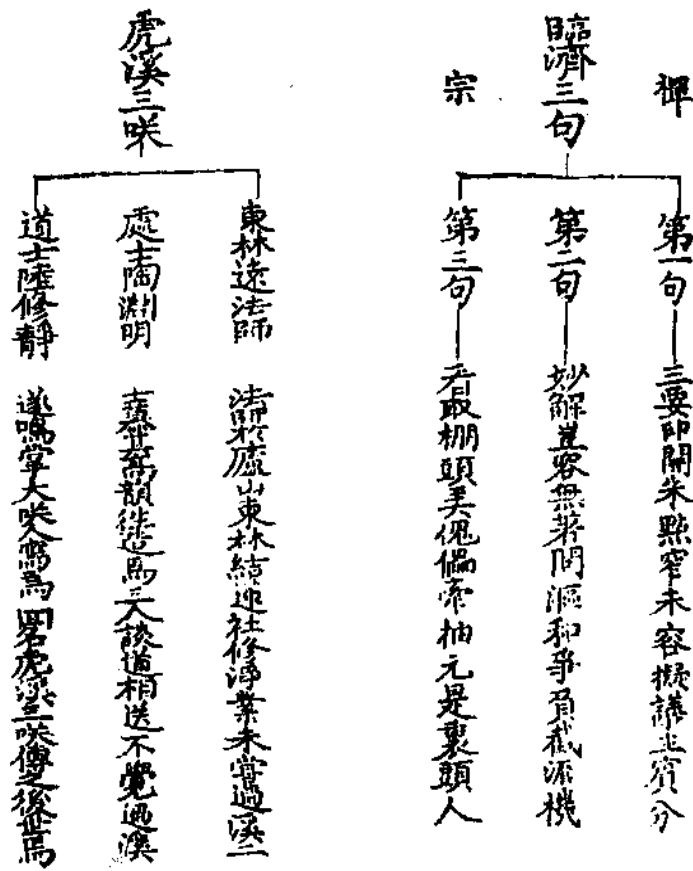 禪
臨濟三句
宗
第一句
三要印開朱點窄未容擬議主賓分
第二句
妙解豈容無著問漚和爭負截流機
第三句
看取棚頭弄傀儡牽抽元是裏頭人
虎溪三咲
東林遠法師
法師於廬山東林結蓮社修淨業未甞過溪二
處士陶淵明
士慕其高韻徃造焉三人談道相送不覺過溪
道士陸修靜
遂鳴掌大咲人寫為圖名虎溪三咲傳之後世焉